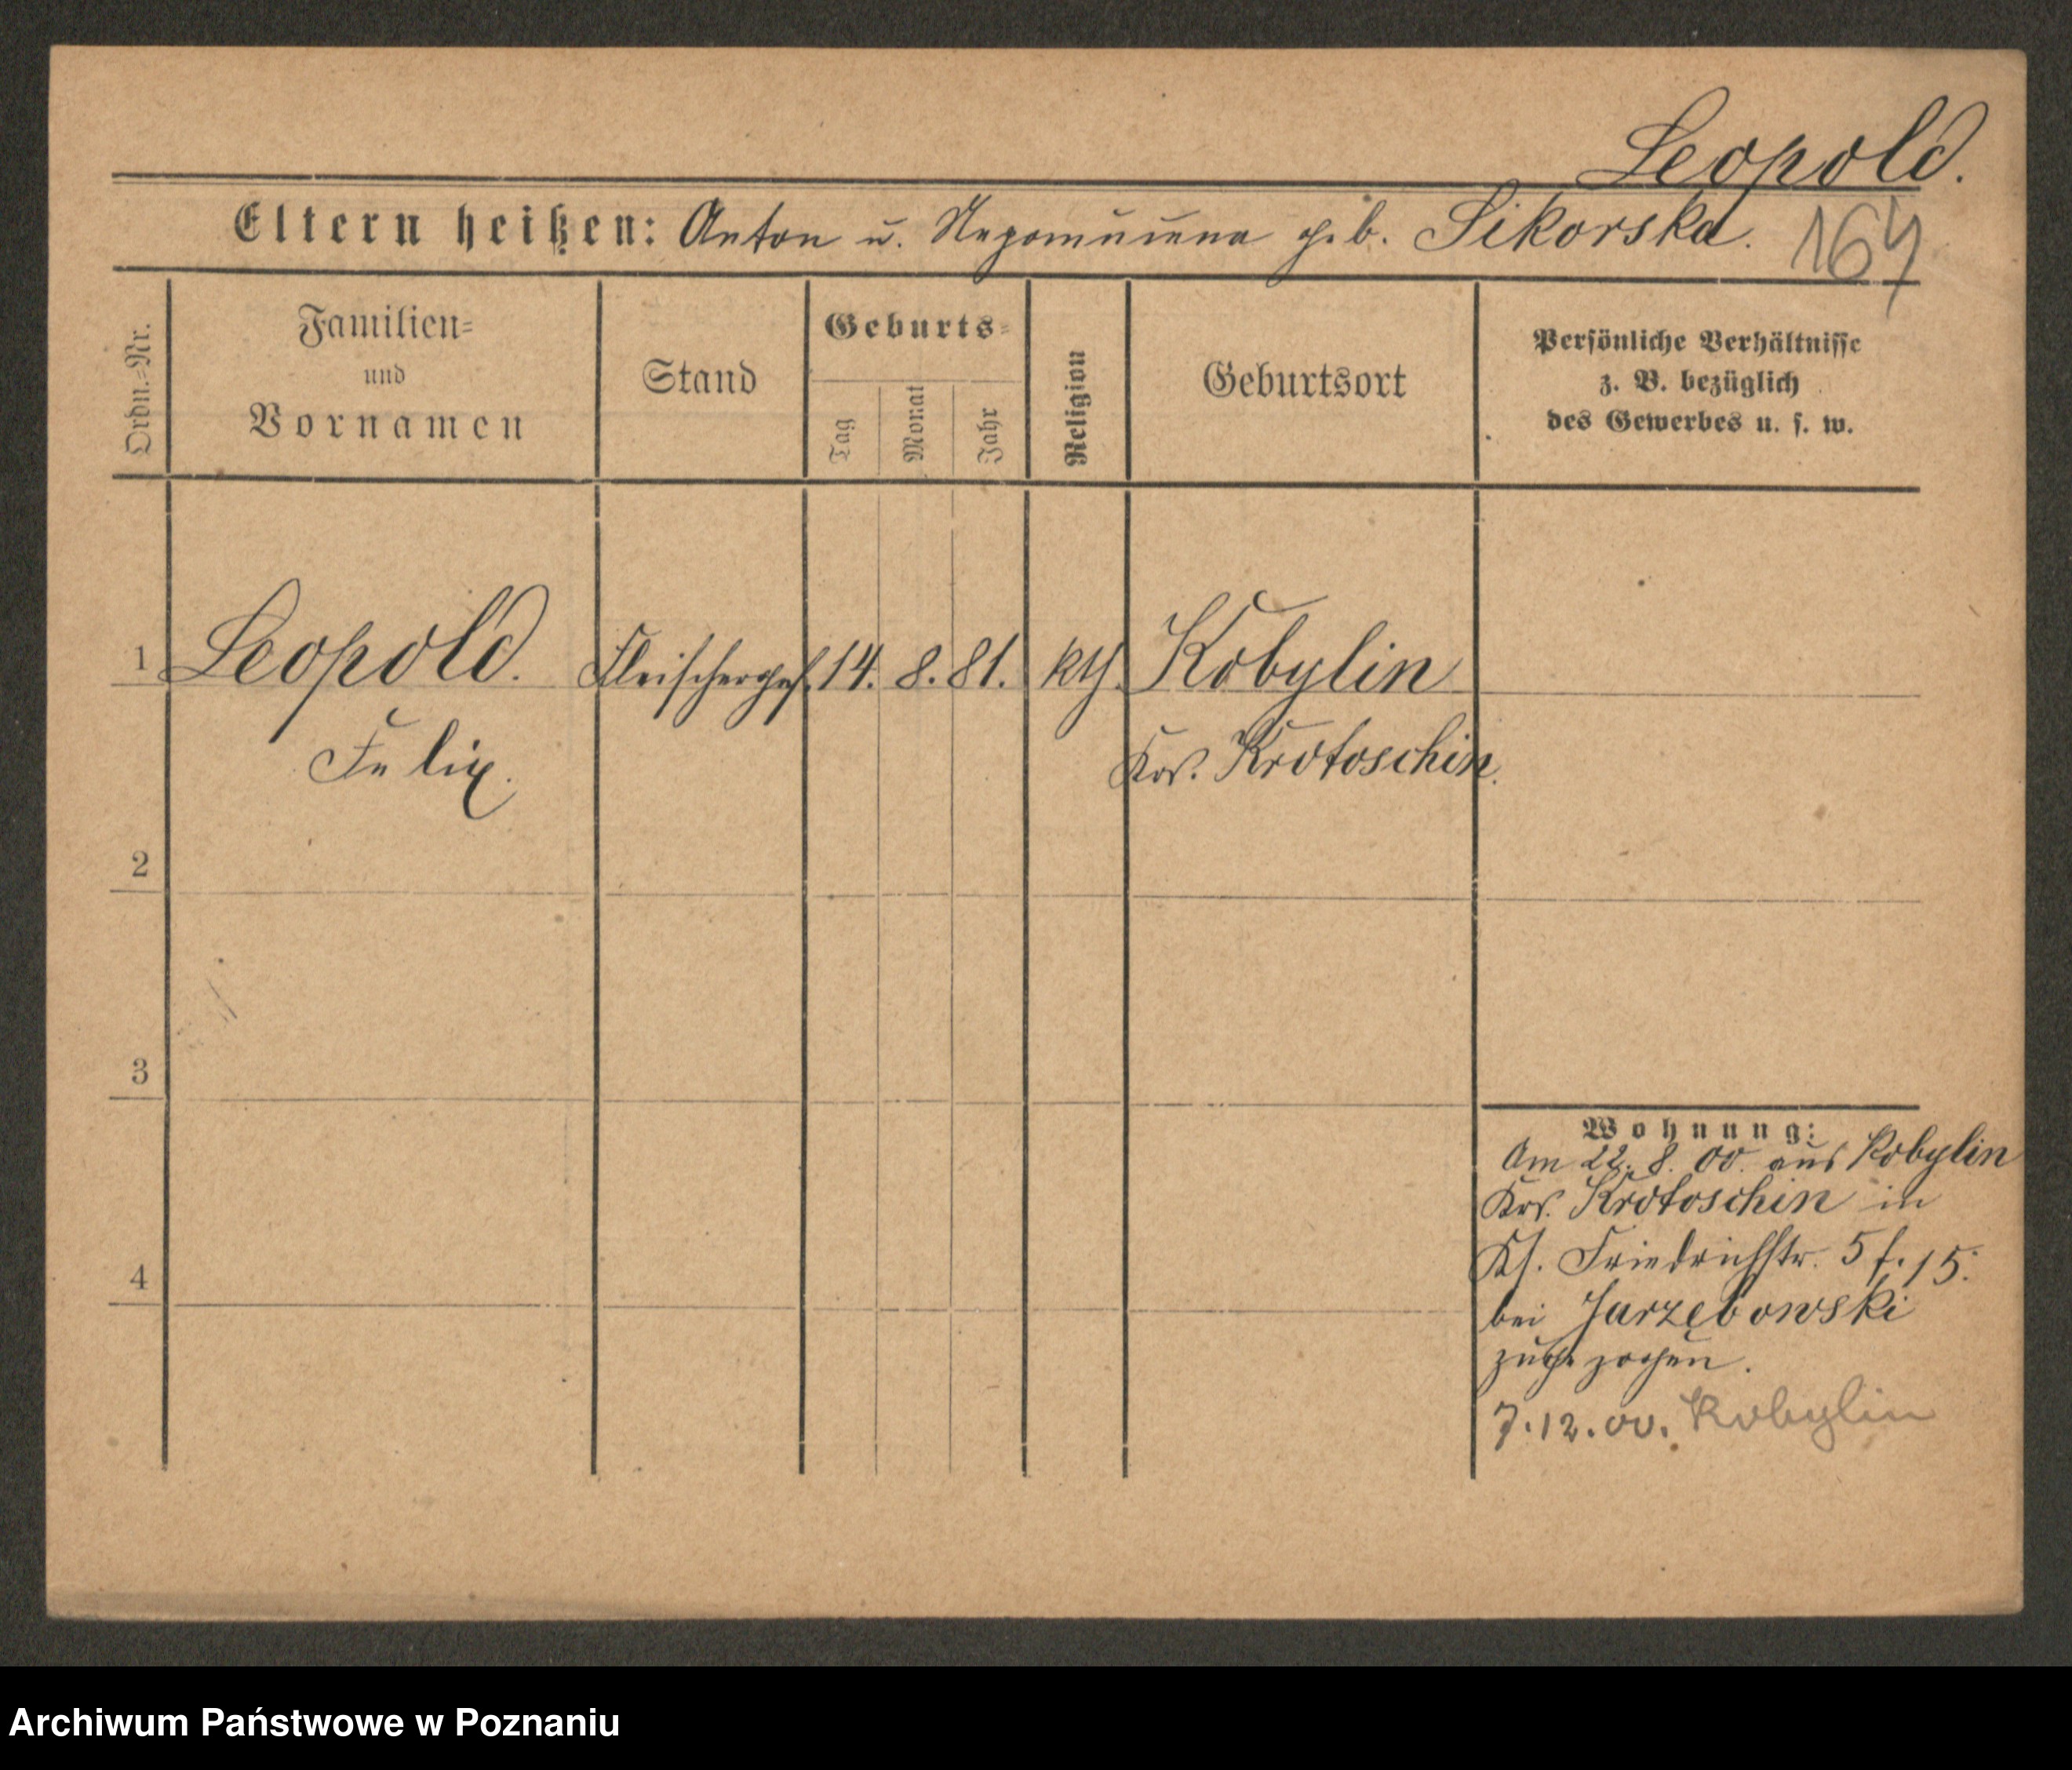 Leopold.
Eltern heißen: Anton u. Nepomucena geb. Sikorska. 164
Ordn.=Nr.
Familien=
und
Vornamen
Stand
Geburts=
Tag
Monat
Jahr
Religion
Geburtsort
Persönliche Verhältnisse
z. B. bezüglich
des Gewerbes u. s. w.
1 Leopold. Fleischerges. 14. 8. 81. kth. Kobylin
Felix. Krs. Krotoschin.
2
3
4
Wohnung:
Am 22. 8. 00. aus Kobylin
Krs. Krotoschin in
Kl. Friedrichstr. 5 f. 15.
bei Jarzębowski
zugezogen.
7.12.00. Kobylin
Archiwum Państwowe w Poznaniu